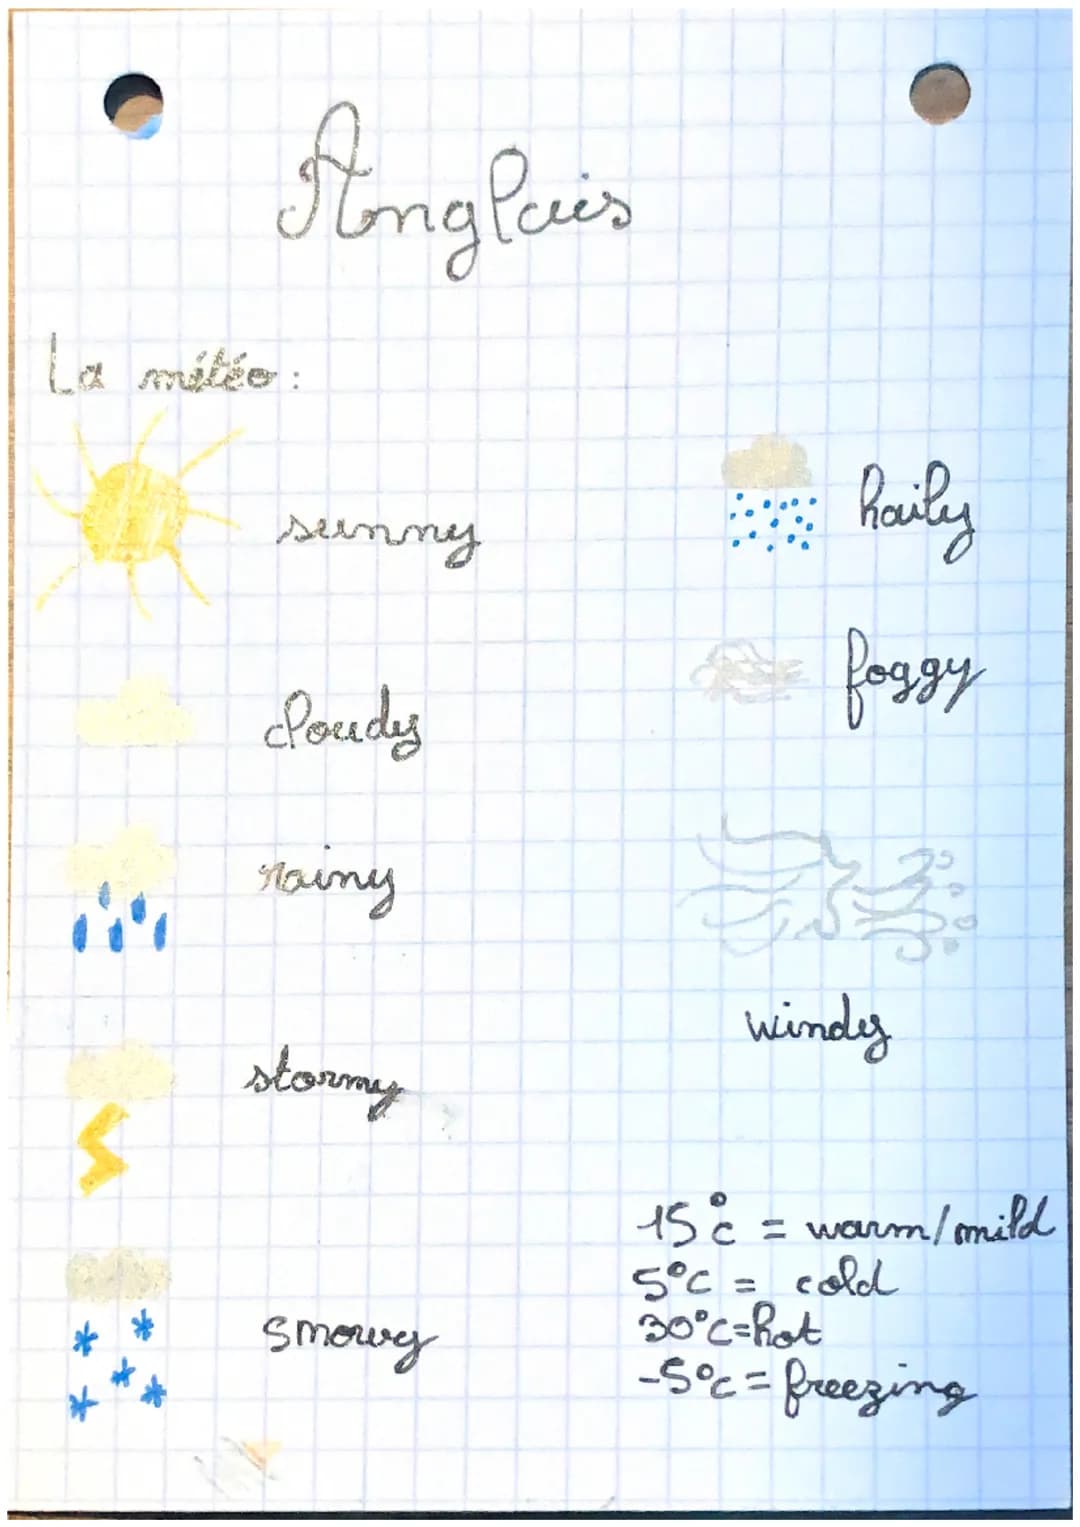 Anglais
La météo :
sunny
cloudy
rainy
stormy
snowy
haily
foggy
windy
15°c = warm/mild
5°C = cold
30°C=hot
-5°c = freezing